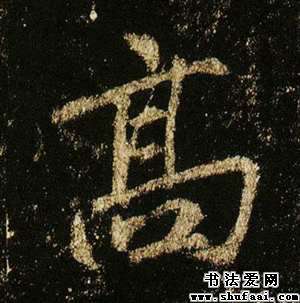 髙
书法爱网
www.shufaai.com